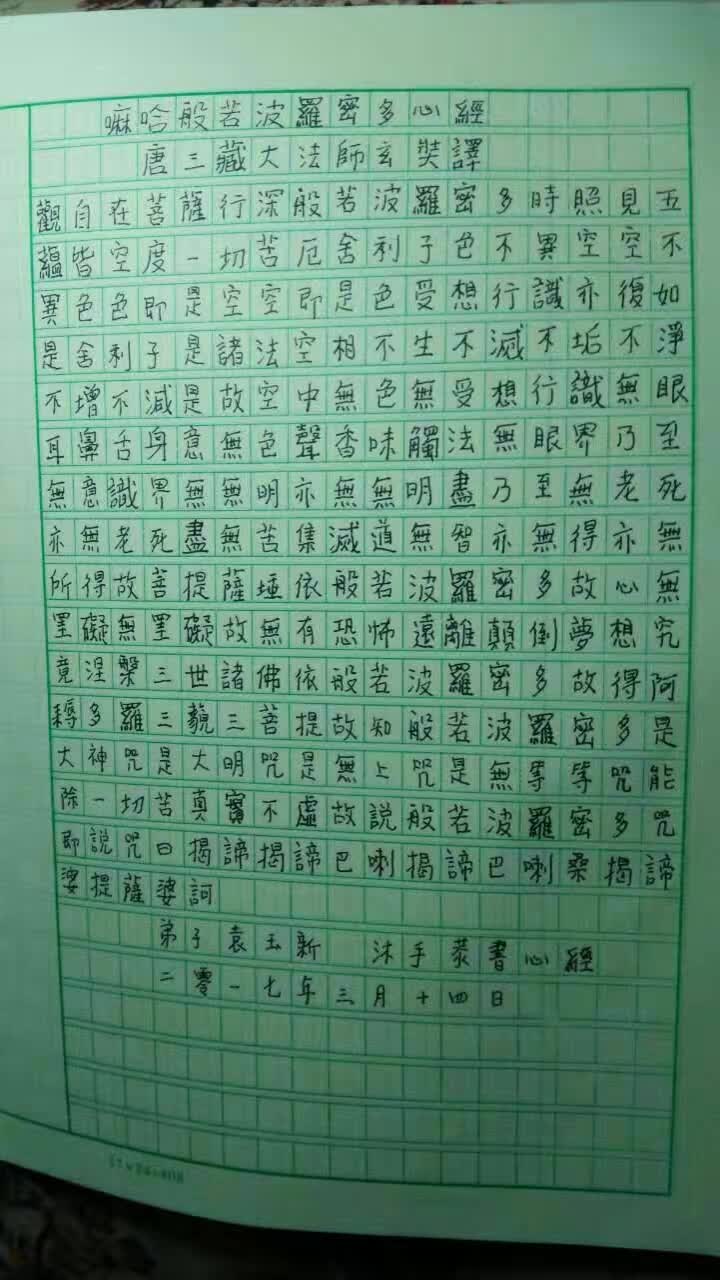 嘛哈般若波羅密多心經
唐三藏大法師玄奘譯
觀自在菩薩行深般若波羅密多時照見五
蘊皆空度一切苦厄舍利子色不異空空不
異色色即是空空即是色受想行識亦復如
是舍利子是諸法空相不生不滅不垢不淨
不增不減是故空中無色無受想行識無眼
耳鼻舌身意無色聲香味觸法無眼界乃至
無意識界無無明亦無無明盡乃至無老死
亦無老死盡無苦集滅道無智亦無得亦無
所得故菩提薩埵依般若波羅密多故心無
罣礙無罣礙故無有恐怖遠離顛倒夢想究
竟涅槃三世諸佛依般若波羅密多故得阿
耨多羅三藐三菩提故知般若波羅密多是
大神咒是大明咒是無上咒是無等等咒能
除一切苦真實不虛故說般若波羅密多咒
即說咒曰揭諦揭諦巴喇揭諦巴喇桑揭諦
婆提薩婆訶
弟子袁玉新 沐手恭書心經
二零一七年三月十四日